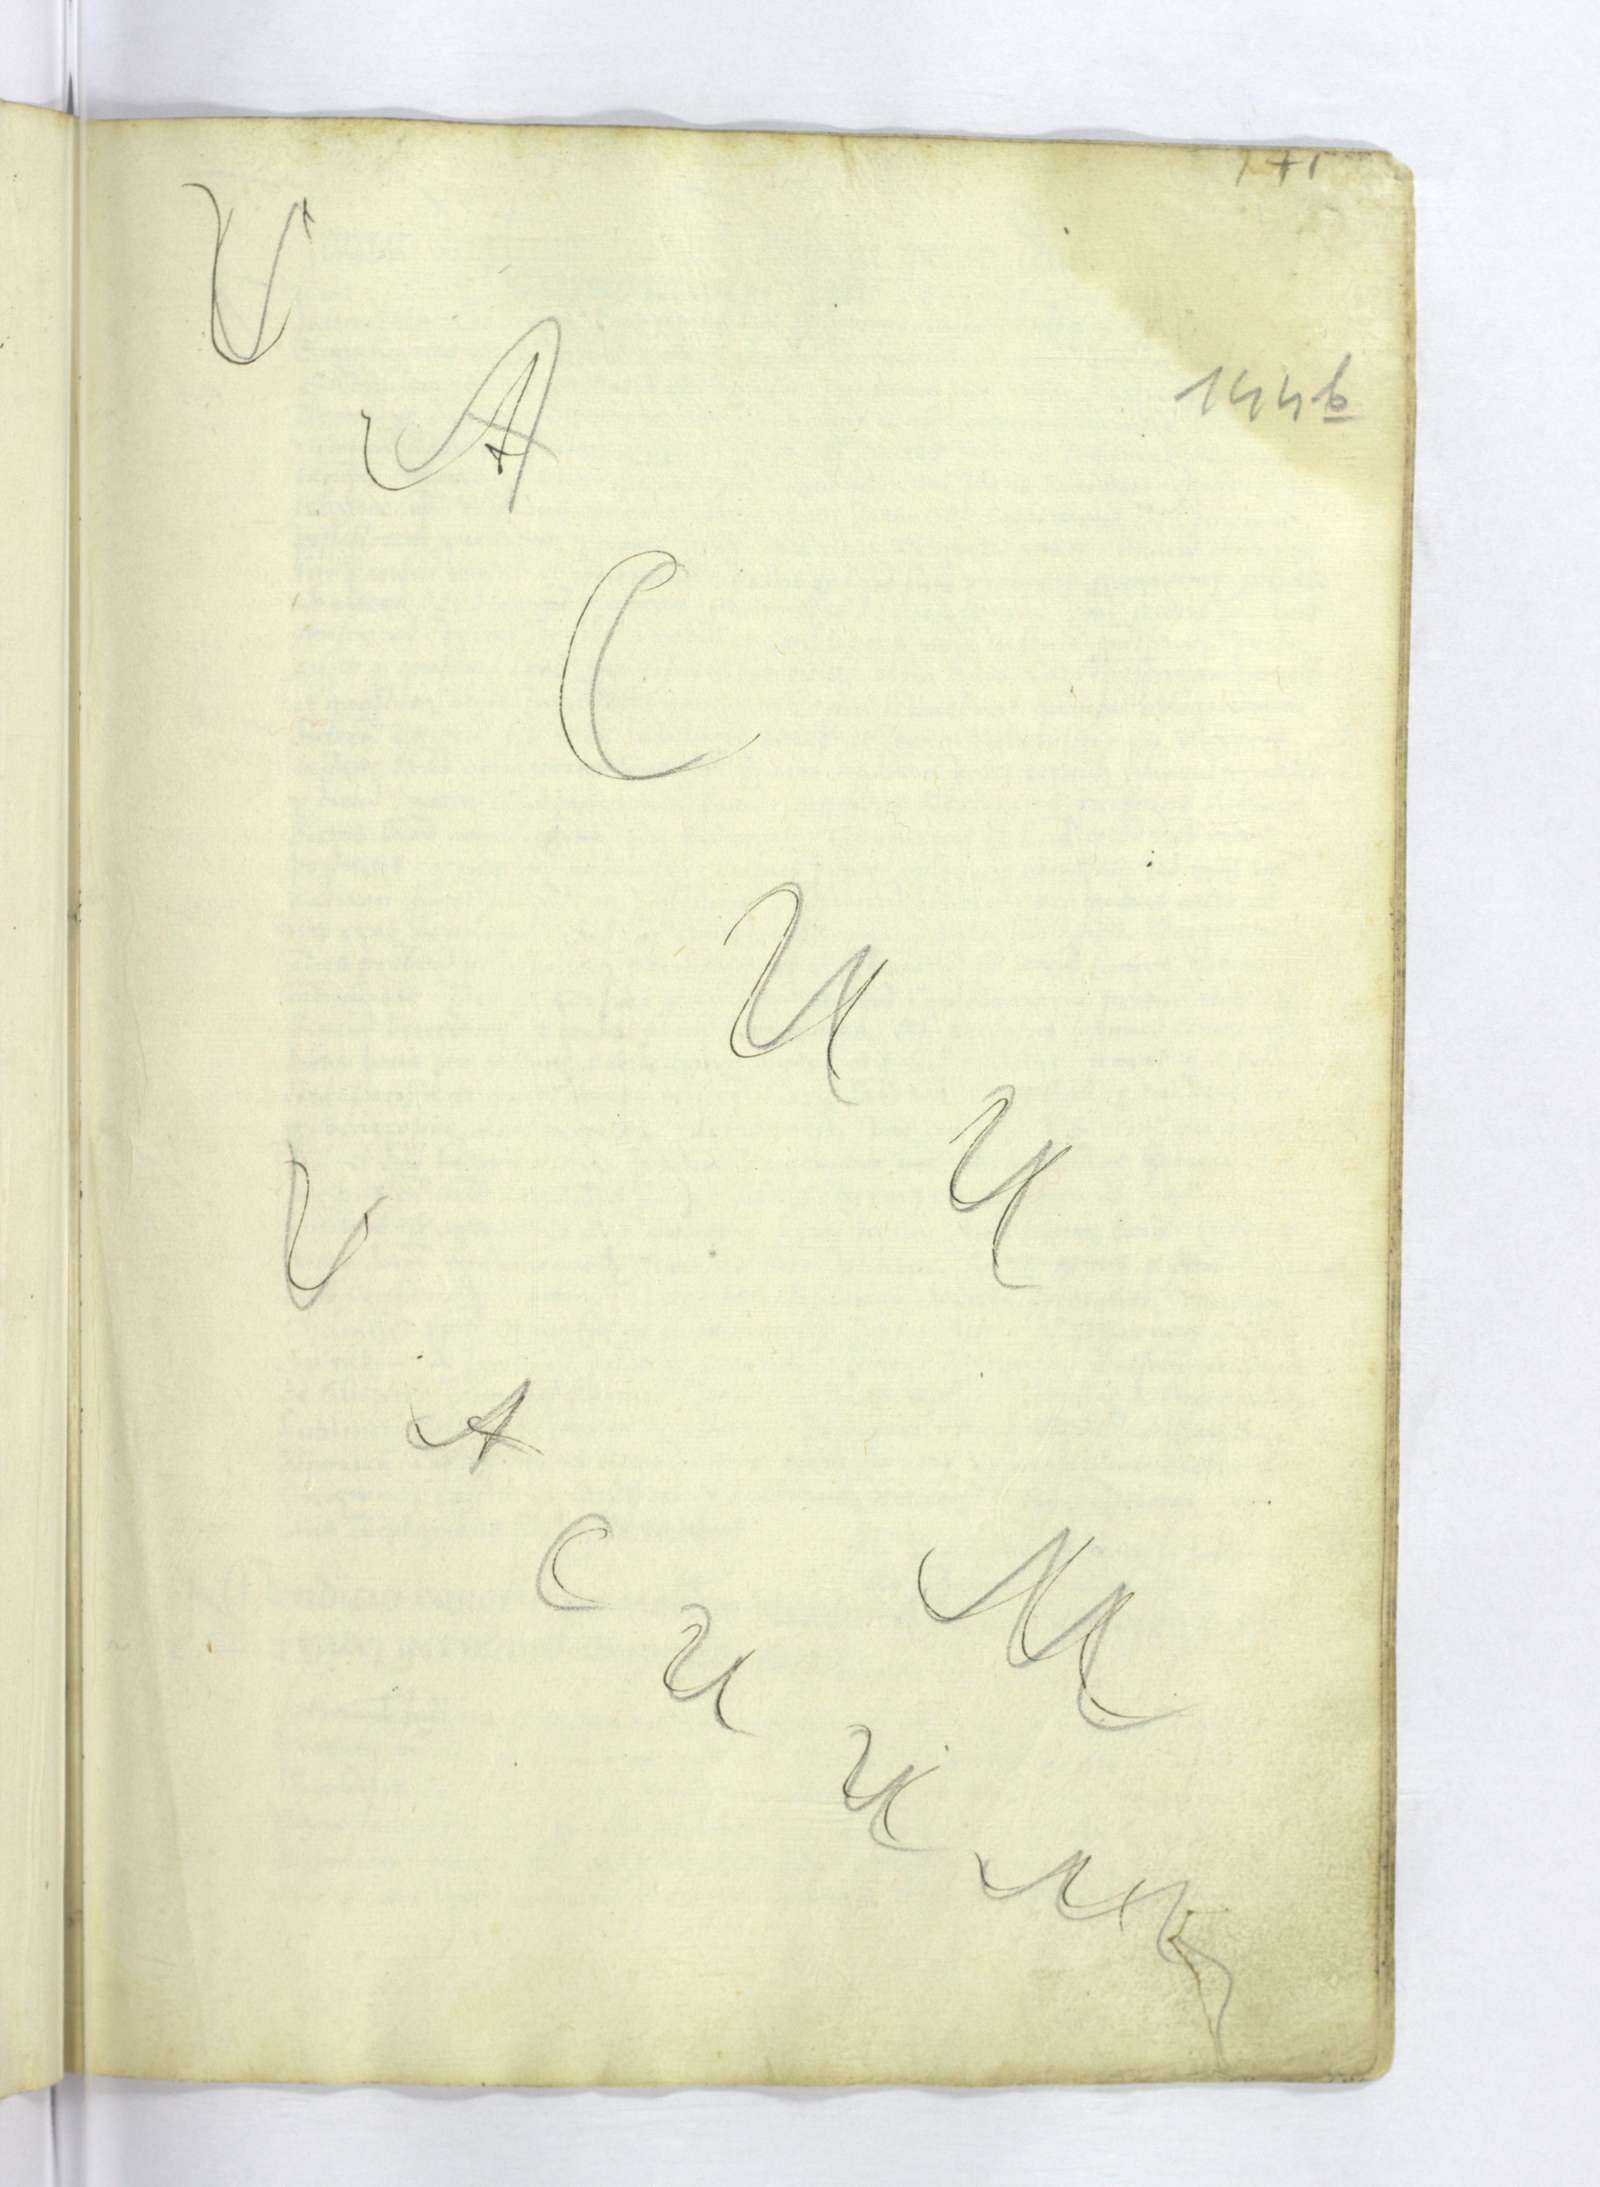 144b
V A C U U M
V A C U U M